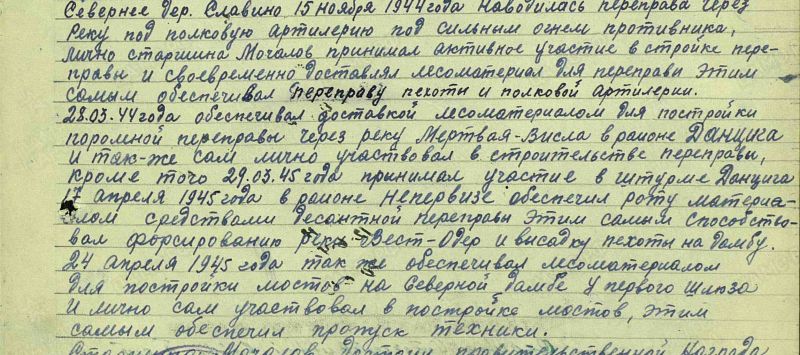 Севернее дер. Славино 15 ноября 1944 года наводилась переправа через
реку под полковую артилерию под сильным огнем противника,
лично старшина Мочалов принимал активное участие в стройке пере-
правы и своевременно доставлял лесоматериал для переправы этим
самым обеспечивал переправу пехоты и полковой артилерии.
28.03.44 года обеспечивал доставкой лесоматериалом для постройки
поромной переправы через реку Мертвая-Висла в районе Данцига
и так-же сам лично участвовал в строительстве переправы,
кроме того 29.03.45 года принимал участие в штурме Данцига
17 апреля 1945 года в районе Непервизе обеспечил роту материа-
лом средствами десантной переправы этим самым способство-
вал форсированию реки Вест-Одер и высадку пехоты на дамбу.
24 апреля 1945 года так же обеспечивал лесоматериалом
для постройки мостов на Северной дамбе у первого шлюза
и лично сам участвовал в постройке мостов, этим
самым обеспечил пропуск техники.
Старшина Мочалов достоин правительственной Награда